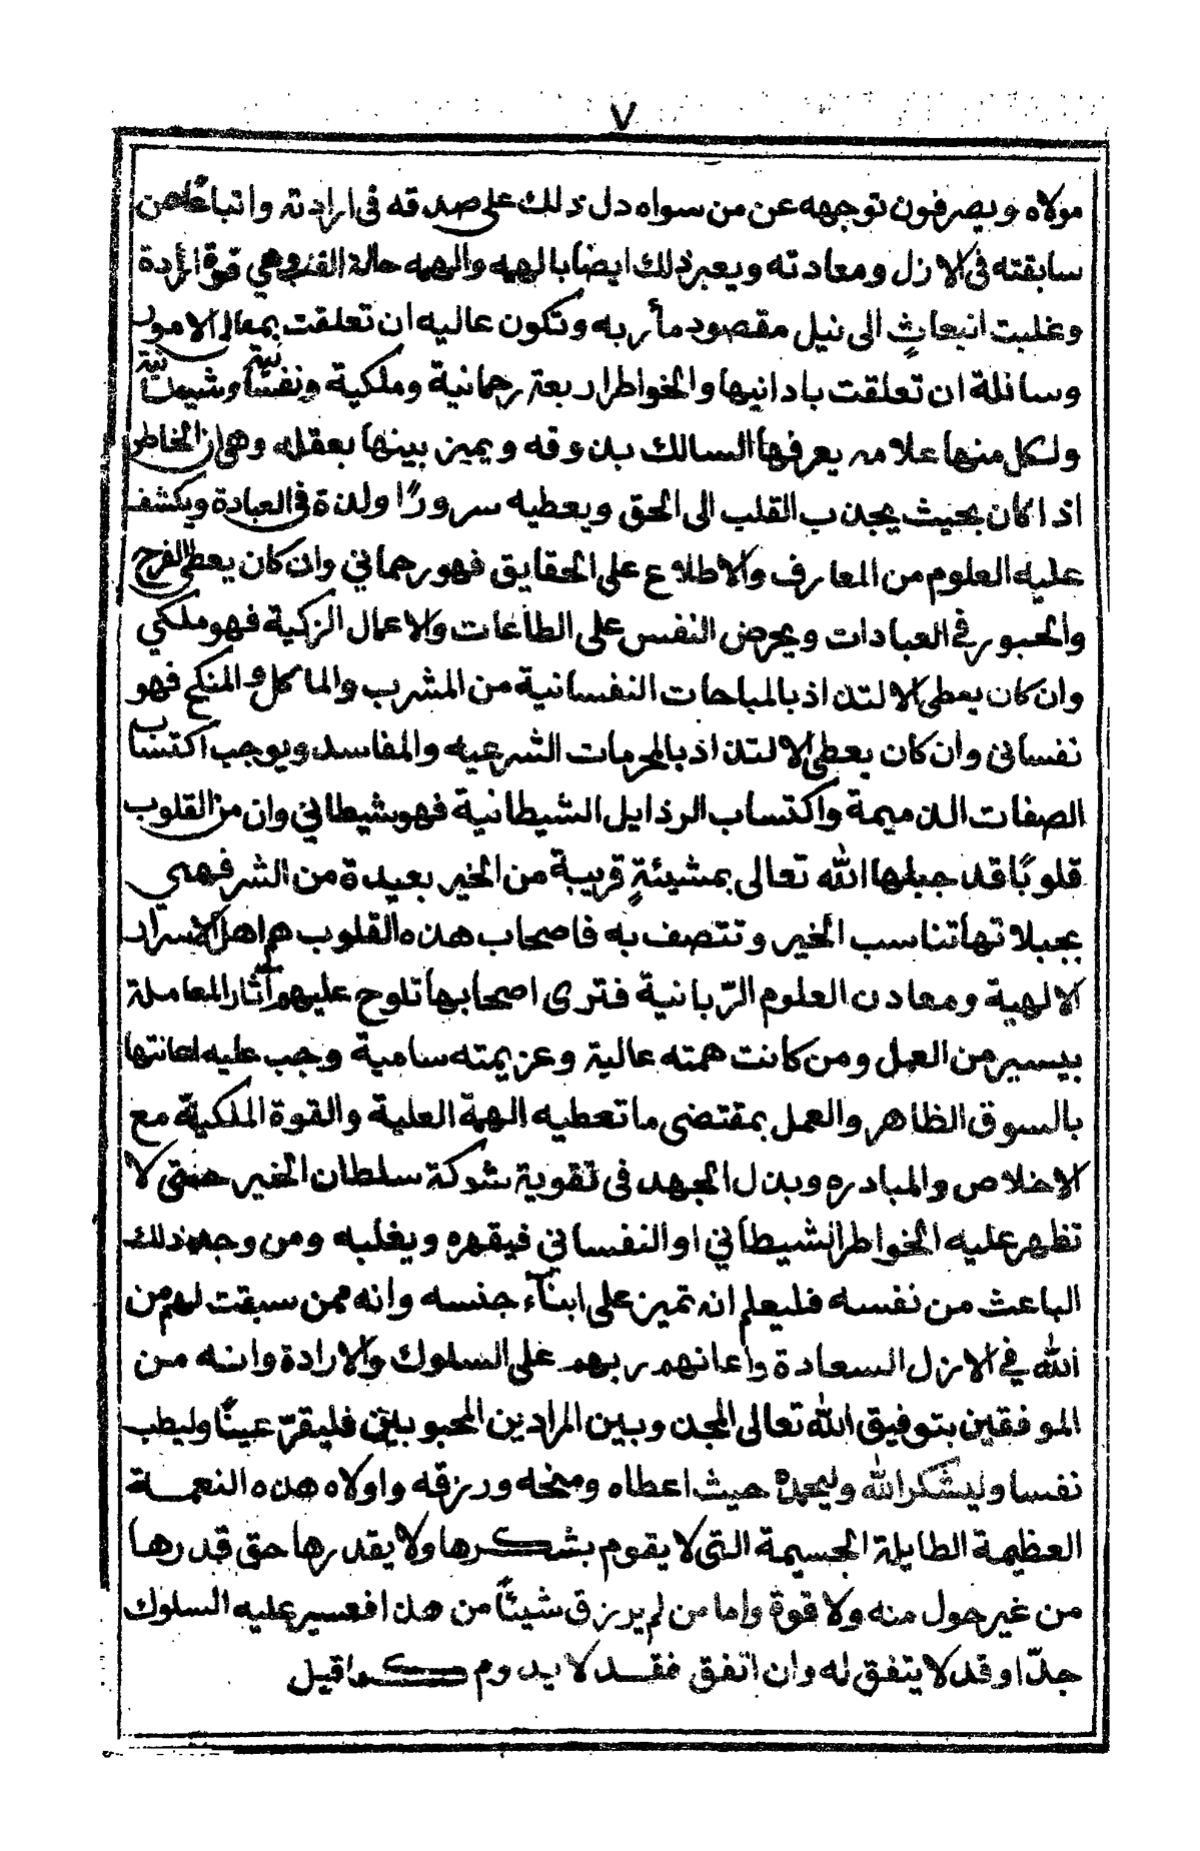 ٧
مولاه ويصرفون توجهه عن من سواه دل ذلك على صدقه فى ارادته وانباعن
سابقته فى الازل ومعادته ويعبر ذلك ايضا بالهمه والهمه حالة القلب وهي قوة ارادة
وغلبت انبعاثٍ الى نيل مقصود مأربه وتكون عاليه ان تعلقت بمعالى الامور
وسافلة ان تعلقت بادانيها والخواطر اربعة رحمانية وملكية ونفسانية وشيطانية
ولكل منها علامه يعرفها السالك بذوقه ويميز بينها بعقله وهى ان الخاطر
اذا كان بحيث يجذب القلب الى الحق ويعطيه سرورًا ولذة فى العبادة ويكشف
عليه العلوم من المعارف والاطلاع على الحقايق فهو رحماني وان كان يعطى الفرح
والحبور في العبادات ويحرض النفس على الطاعات والاعمال الزكية فهو ملكي
وان كان يعطى الالتذاذ بالمباحات النفسانية من المشرب والماكل والمنكح فهو
نفسانى وان كان يعطى الالتذاذ بالمحرمات الشرعيه والمفاسد ويوجب اكتساب
الصفات الذميمة واكتساب الرذايل الشيطانية فهو شيطاني وان من القلوب
قلوبًا قد جبلها الله تعالى بمشيئةٍ قريبة من الخير بعيدة من الشر فهى
بجبلاتها تناسب الخير وتتصف به فاصحاب هذه القلوب هم اهل الاسرار
الالهية ومعادن العلوم الرّبانية فترى اصحابها تلوح عليهم آثار المعاملة
بيسير من العمل ومن كانت همته عالية وعزيمته سامية وجب عليه اعانتها
بالسوق الظاهر والعمل بمقتضى ما تعطيه الهمة العلية والقوة الملكية مع
الاخلاص والمبادره وبذل الجهد فى تقوية شوكة سلطان الخير حتى لا
تظهر عليه الخواطر الشيطاني او النفساني فيقهره ويغلبه ومن وجد ذلك
الباعث من نفسه فليعلم انه تميز على ابناء جنسه وانه ممن سبقت لهم من
الله في الازل السعادة واعانهم ربهم على السلوك والارادة وانه من
الموفقين بتوفيق الله تعالى المجذوبين المرادين المحبوبين فليقرّ عينًا وليطب
نفسا وليشكر الله وليحمده حيث اعطاه ومنحه ورزقه واولاه هذه النعمة
العظيمة الطايلة الجسيمة التى لا يقوم بشكرها ولا يقدرها حق قدرها
من غير حول منه ولا قوة واما من لم يرزق شيئًا من هذا فعسير عليه السلوك
جدّا وقد لا يتفق له وان اتفق فقد لا يدوم كما قيل